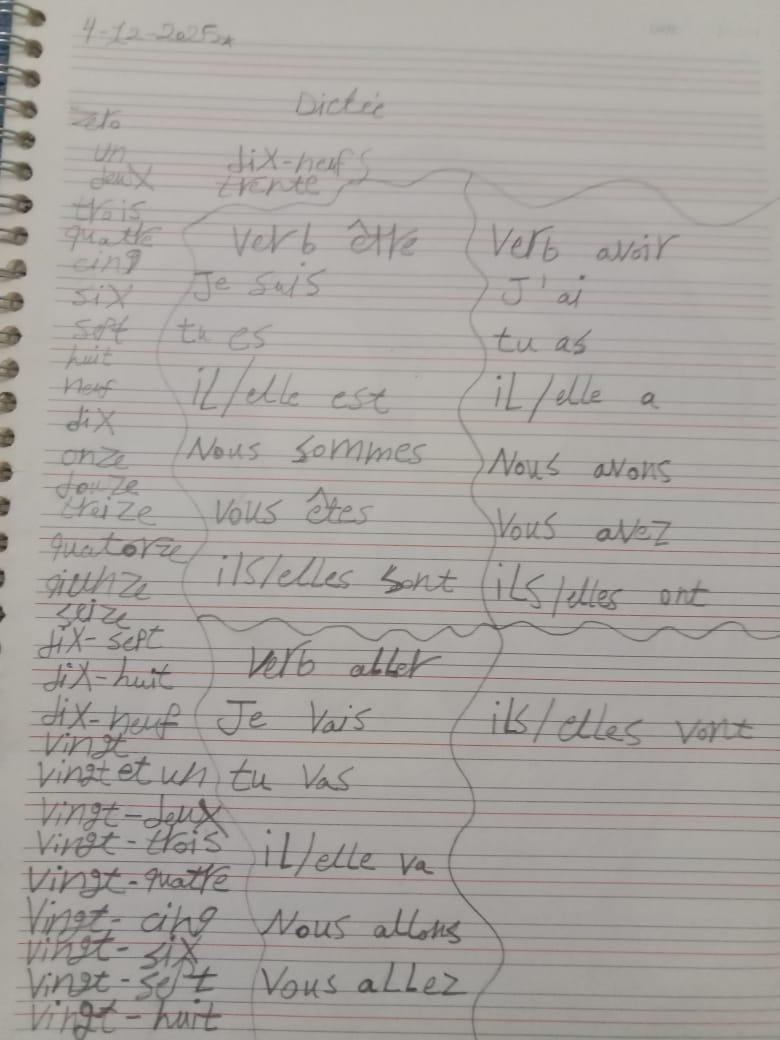 4-12-2025
Dictée
zero
un
deux
trois
quatre
cinq
six
sept
huit
neuf
dix
onze
douze
treize
quatorze
qiunze
seize
dix-sept
dix-huit
dix-neuf
vingt
vingt et un
vingt-deux
vingt-trois
vingt-quatre
vingt-cinq
vingt-six
vingt-sept
vingt-huit
dix-neuf
trente
Verb être
Je suis
tu es
il/elle est
Nous sommes
Vous êtes
ils/elles sont
Verb avoir
J'ai
tu as
il/elle a
Nous avons
Vous avez
ils/elles ont
Verb aller
Je vais
tu vas
il/elle va
Nous allons
Vous allez
ils/elles vont